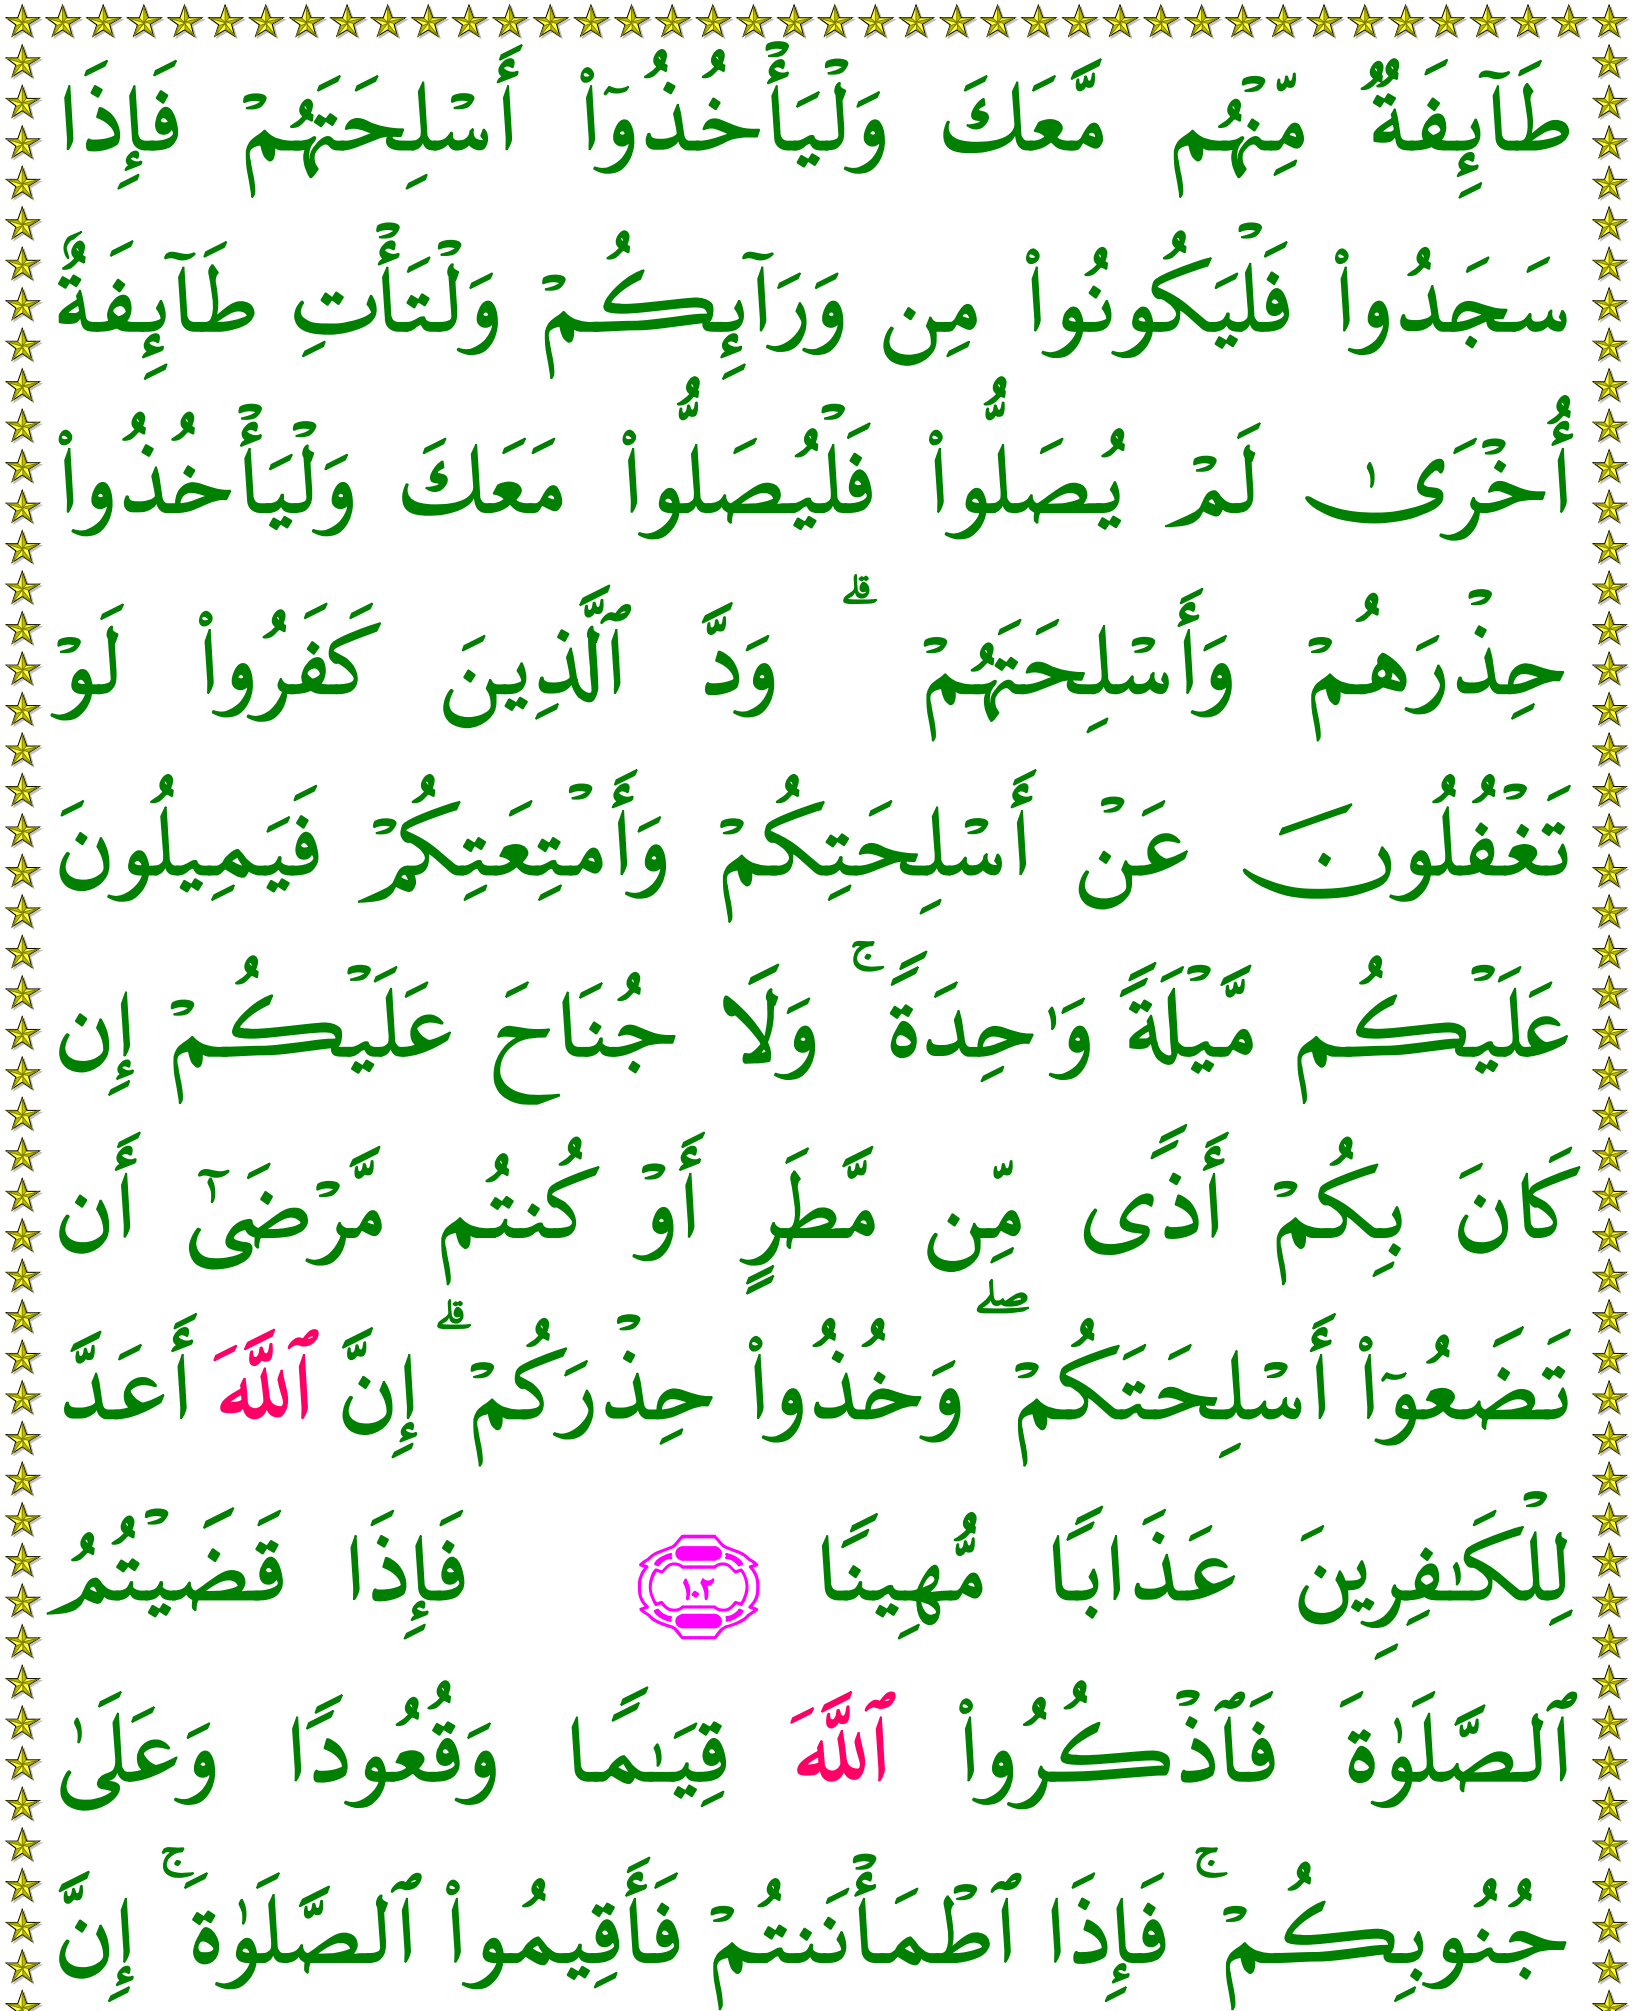 طَآئِفَةٌ مِّنْهُم مَّعَكَ وَلْيَأْخُذُوٓا۟ أَسْلِحَتَهُمْ فَإِذَا
سَجَدُوا۟ فَلْيَكُونُوا۟ مِن وَرَآئِكُمْ وَلْتَأْتِ طَآئِفَةٌ
أُخْرَىٰ لَمْ يُصَلُّوا۟ فَلْيُصَلُّوا۟ مَعَكَ وَلْيَأْخُذُوا۟
حِذْرَهُمْ وَأَسْلِحَتَهُمْ ۗ وَدَّ ٱلَّذِينَ كَفَرُوا۟ لَوْ
تَغْفُلُونَ عَنْ أَسْلِحَتِكُمْ وَأَمْتِعَتِكُمْ فَيَمِيلُونَ
عَلَيْكُم مَّيْلَةً وَٰحِدَةً ۚ وَلَا جُنَاحَ عَلَيْكُمْ إِن
كَانَ بِكُمْ أَذًى مِّن مَّطَرٍ أَوْ كُنتُم مَّرْضَىٰٓ أَن
تَضَعُوٓا۟ أَسْلِحَتَكُمْ ۖ وَخُذُوا۟ حِذْرَكُمْ ۗ إِنَّ ٱللَّهَ أَعَدَّ
لِلْكَـٰفِرِينَ عَذَابًا مُّهِينًا ١٠٢ فَإِذَا قَضَيْتُمُ
ٱلصَّلَوٰةَ فَٱذْكُرُوا۟ ٱللَّهَ قِيَـٰمًا وَقُعُودًا وَعَلَىٰ
جُنُوبِكُمْ ۚ فَإِذَا ٱطْمَأْنَنتُمْ فَأَقِيمُوا۟ ٱلصَّلَوٰةَ ۚ إِنَّ